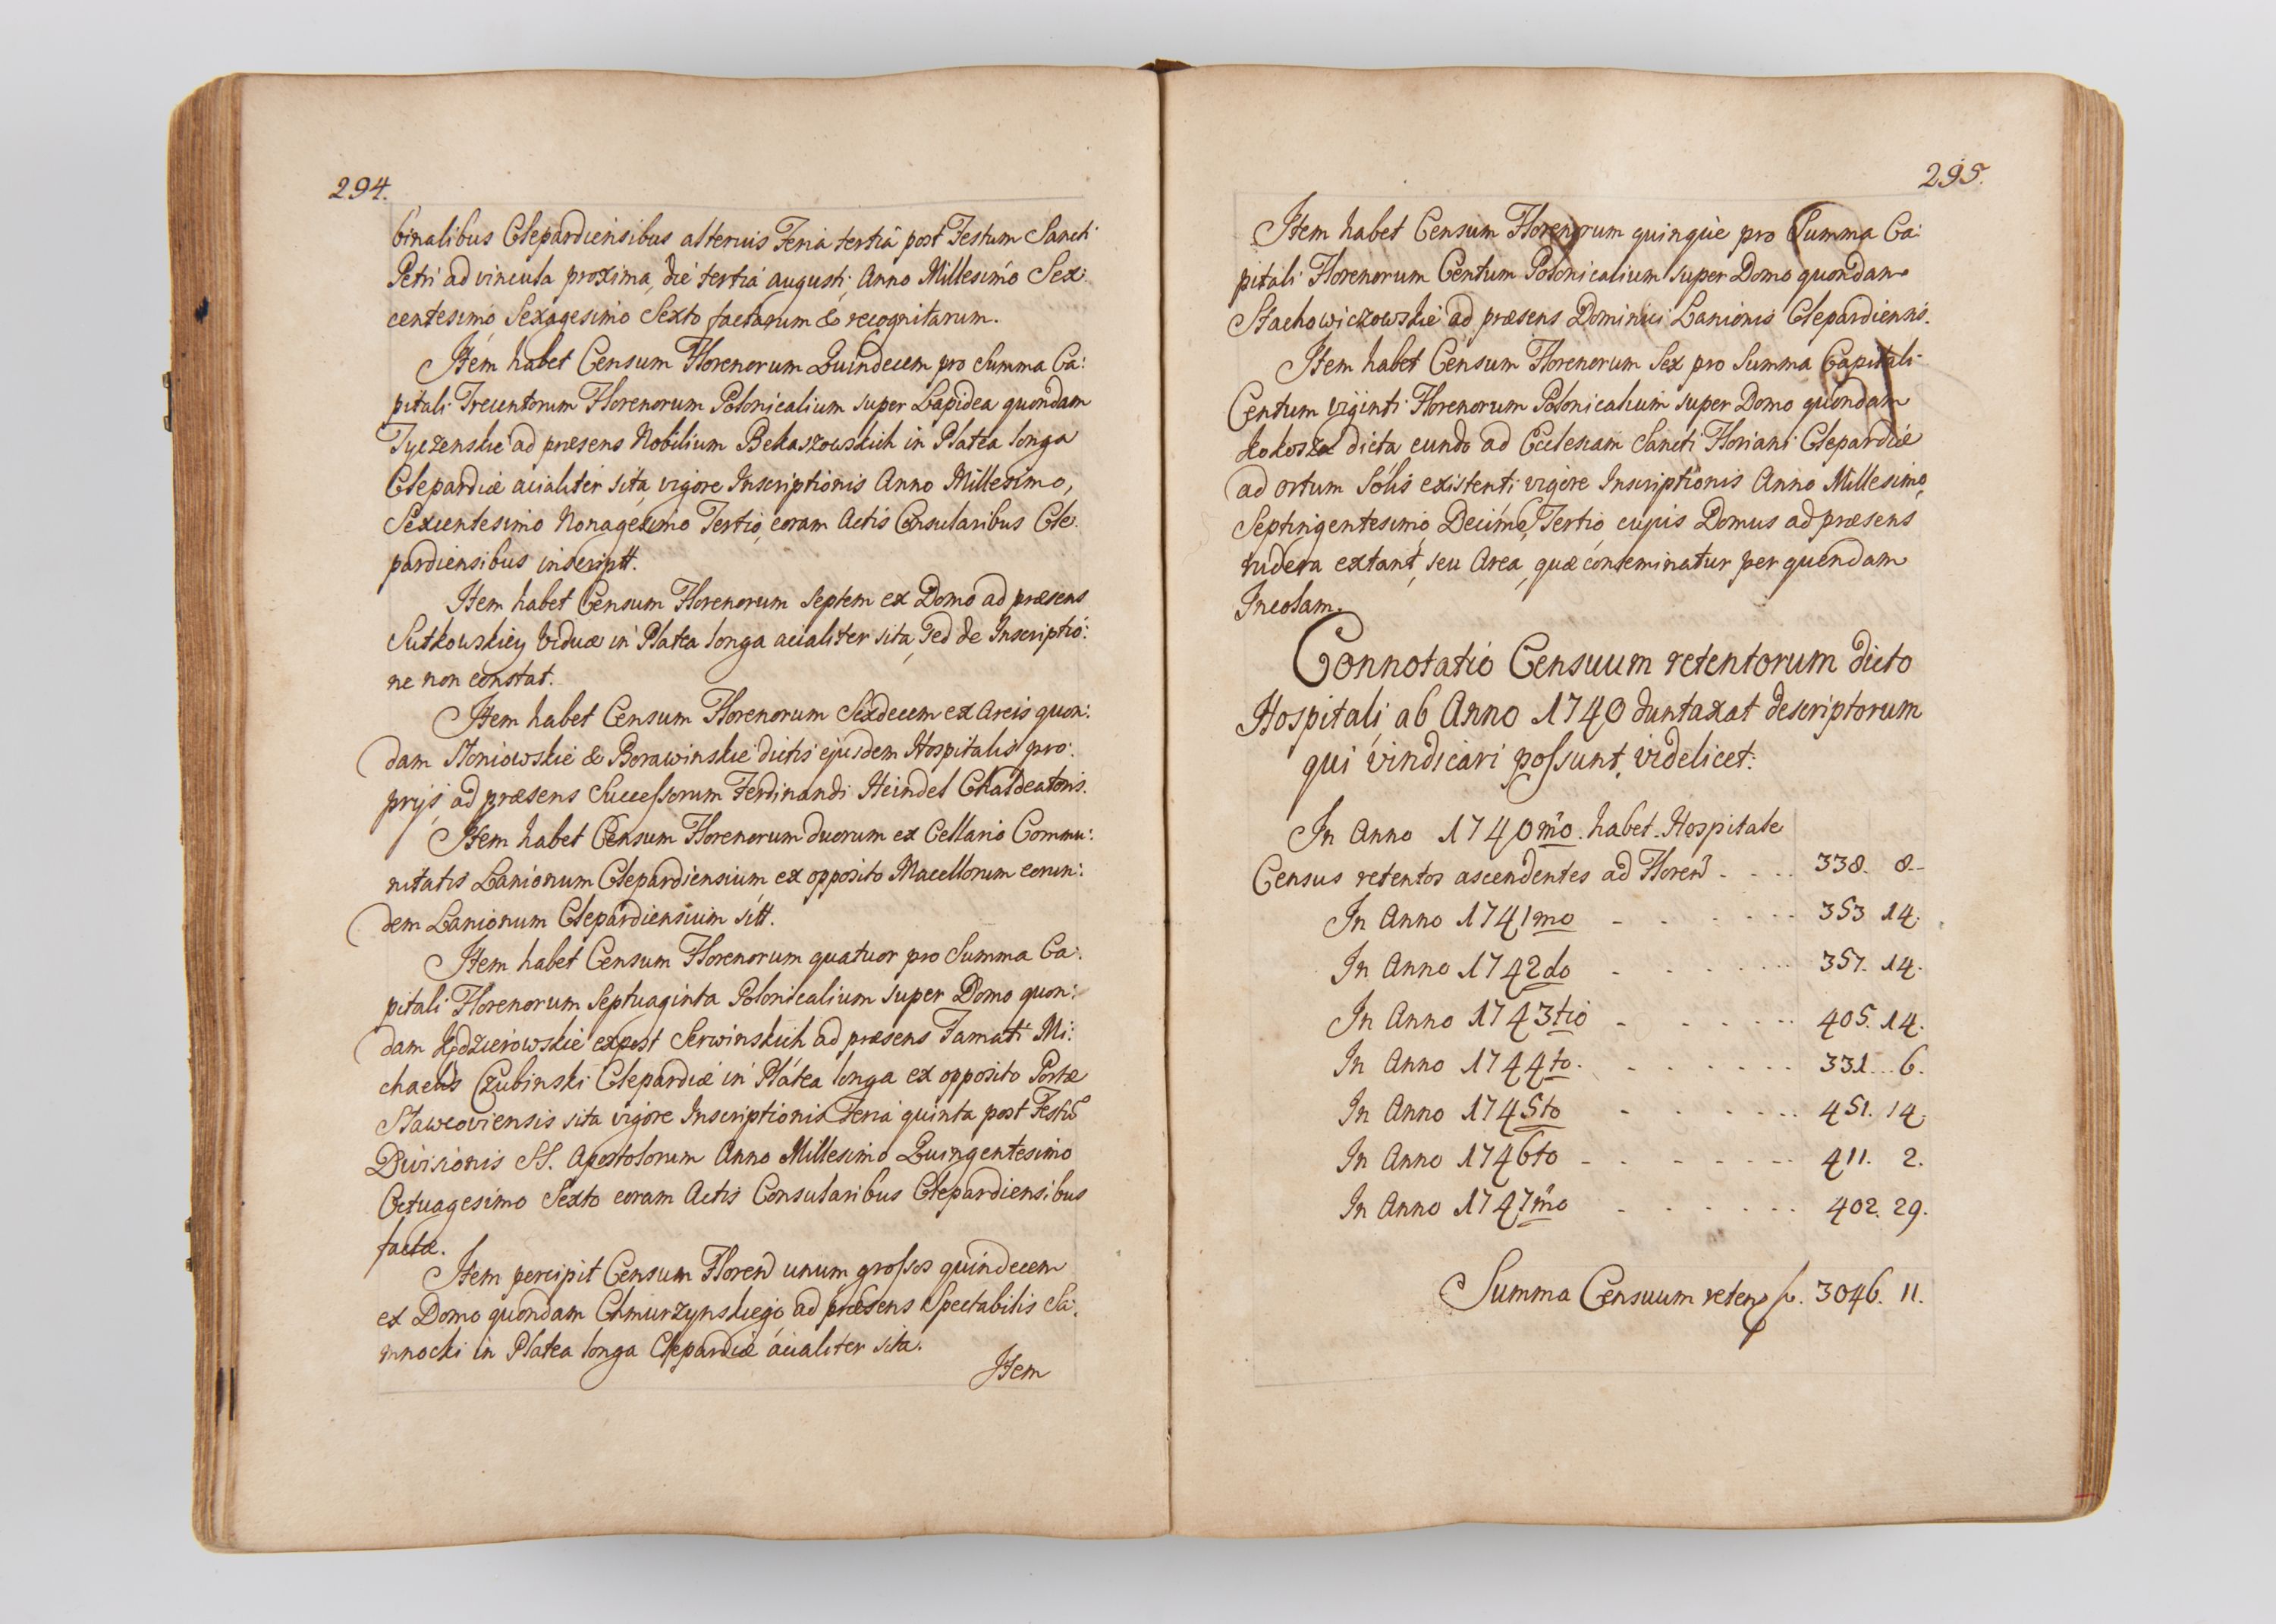 294.
binalibus Clepardiensibus alteruis Feria tertiâ post Festum Sancti
Petri ad vincula proxima, die tertiâ augusti, Anno Millesimo Sex:
centesimo Sexagesimo Sexto factarum & recognitarum.
Item habet Censum Florenorum Quindecem pro Summa Ca:
pitali Trecentorum Florenorum Polonicalium super Lapidea quondam
Tyczenskie ad præsens Nobilium Bekaszowskich in Platea longa
Clepardiæ acialiter sita, vigore Inscriptionis Anno Millesimo,
Sexcentesimo Nonagesimo Tertio, coram Actis Consularibus Cle:
pardiensibus inscriptt.
Item habet Censum Florenorum Septem ex Domo ad præsens
Sutkowskiey Viduæ in Platea longa acialiter sita, Sed de Inscriptio:
ne non constat.
Item habet Censum Florenorum Sexdecem ex Areis quon:
dam Słoniowskie & Borawinskie dictis ejusdem Hospitalis pro:
prijs, ad præsens Successorum Ferdinandi Heindel Chaldeatoris.
Item habet Censum Florenorum duorum ex Cellario Commu:
nitatis Lanionum Clepardiensium ex opposito Macellorum eorun:
dem Lanionum Clepardiensium sitt.
Item habet Censum Florenorum quatuor pro Summa Ca:
pitali Florenorum Septuaginta Polonicalium super Domo quon:
dam Jędzierowskie expost Serwinskich ad præsens Famati Mi:
chaelis Czubinski Clepardiæ in Platea longa ex opposito Portæ
Slawcoviensis sita vigore Inscriptionis Feria quinta post Festũ
Divisionis SS. Apostolorum Anno Millesimo Quingentesimo
Octuagesimo Sexto coram Actis Consularibus Clepardiensibus
factæ.
Item percipit Censum Floren unum grossos quindecem
ex Domo quondam Chmurzynskiego, ad præsens Spectabilis Sa:
mnocki in Platea longa Clepardiæ acialiter sita.
Item
295.
Item habet Censum Florenorum quinque pro Summa Ca:
pitali Florenorum Centum Polonicalium super Domo quondam
Stachowiczowskie ad præsens Dominici Lanionis Clepardiensis.
Item habet Censum Florenorum Sex pro Summa Capitali
Centum viginti Florenorum Polonicalium super Domo quondam
kokosza dicta eundo ad Ecclesiam Sancti Floriani Clepardiæ
ad ortum Solis existenti vigore Inscriptionis Anno Millesimo,
Septingentesimo, Decimo, Tertio, cujus Domus ad præsens
rudera extant, seu Area, quæ conteminatur per quendam
Incolam.
Connotatio Censuum retentorum dicto
Hospitali, ab Anno 1740 duntaxat descriptorum
qui vindicari possunt, videlicet:
In Anno 1740mo. habet Hospitale
Census retentos ascendentes ad Floren . . . . 338. 8.
In Anno 1741mo - . . . . . 353 14.
In Anno 1742do - . . . . . 357. 14.
In Anno 1743tio - . . . . . 405. 14.
In Anno 1744to. . . . . . . 331. 6.
In Anno 1745to - . . . . . 451. 14.
In Anno 1746to - . . . . . 411. 2.
In Anno 1747mo - . . . . . 402. 29.
Summa Censuum reten fl. 3046. 11.